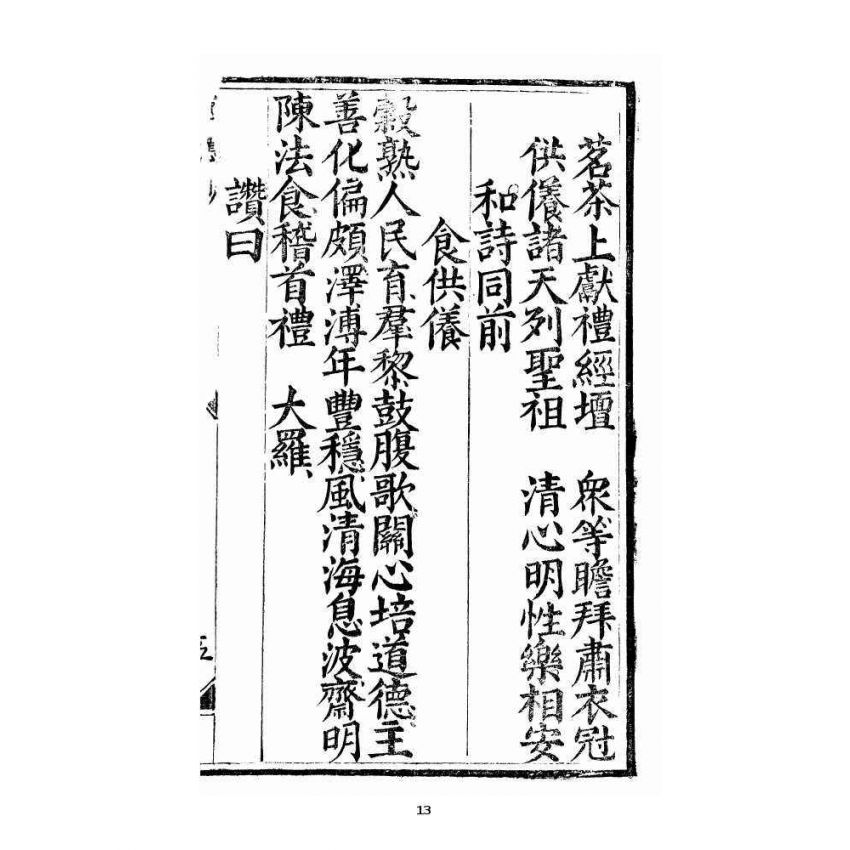 茗茶上獻禮經壇　眾等瞻拜肅衣冠
供儀諸天列聖祖　清心明性樂相安
和詩同前
食供儀
穀熟人民育羣黎鼓腹歌關心培道德主
善化偏頗澤溥年豐穩風清海息波齋明
陳法食稽首禮　大羅
讚曰
五
13